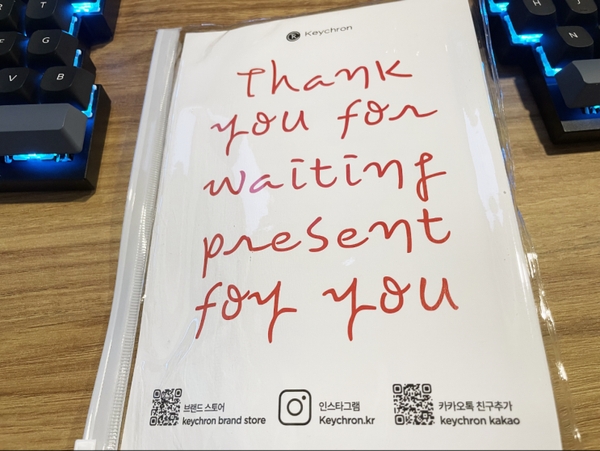 Keychron
Thank
you for
waiting
present
foy you
브랜드 스토어
keychron brand store
인스타그램
Keychron.kr
카카오톡 친구추가
keychron kakao
T
G
V
B
H
J
N